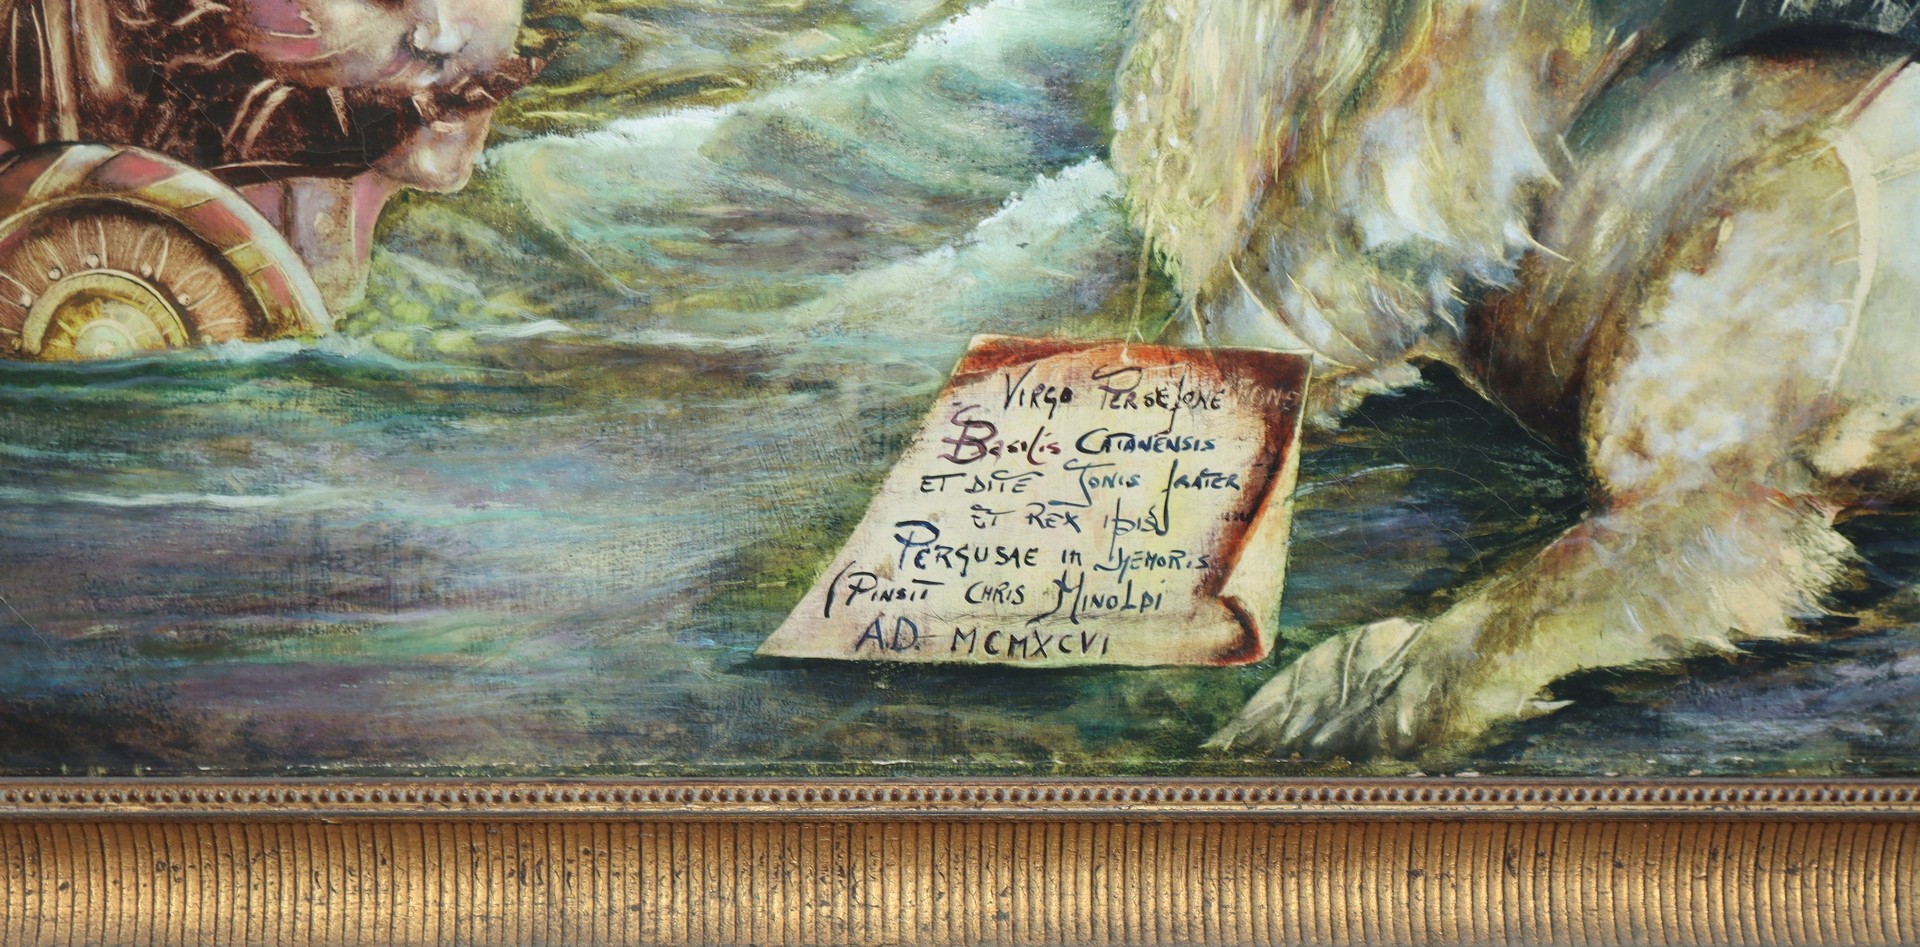 Virgo Persefone
Basilis Catanensis
et Dite Jonis frater
et Rex
Pergusae in
(Pinsit Chris Minoldi
A.D. MCMXCVI